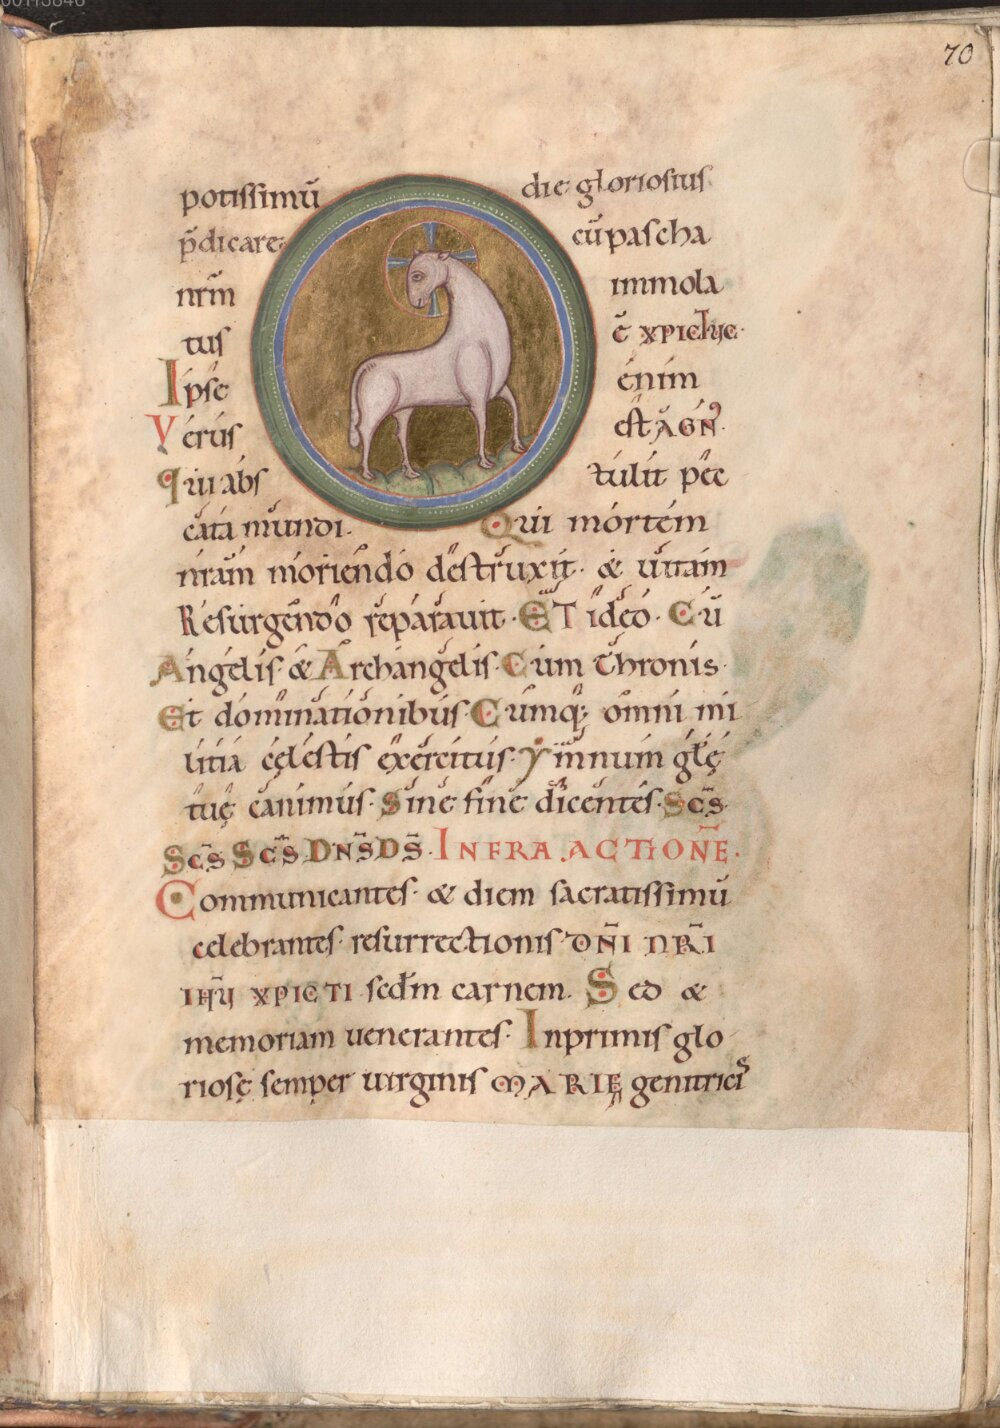 70
potissimū die gloriosius
p̄dicare cū pascha
nr̄m immola
tus ē xpictuc
Ipse enim
Verus est AGN᾽
qui abs tulit pec
cata mundi. Qui mortem
nr̄am moriendo destruxit. & uitam
Resurgendo reparauit. ET ideo. Cū
Angelis & Archangelis. Cum Thronis.
Et dominationibus. Cumq; omni mi
litia cęlestis exercitus. Ymnum gl̄ę
tuę canimus. Sine fine dicentes. Scs̄.
Scs̄ Scs̄ Dns̄ Ds̄. INFRA ACTIONĒ.
Communicantes. & diem sacratissimū
celebrantes. resurrectionis DN̄I NR̄I
IHŪ XPICTI sed̄m carnem. Sed &
memoriam uenerantes. Inprimis glo
riosę semper uirginis MARIĘ genitricis